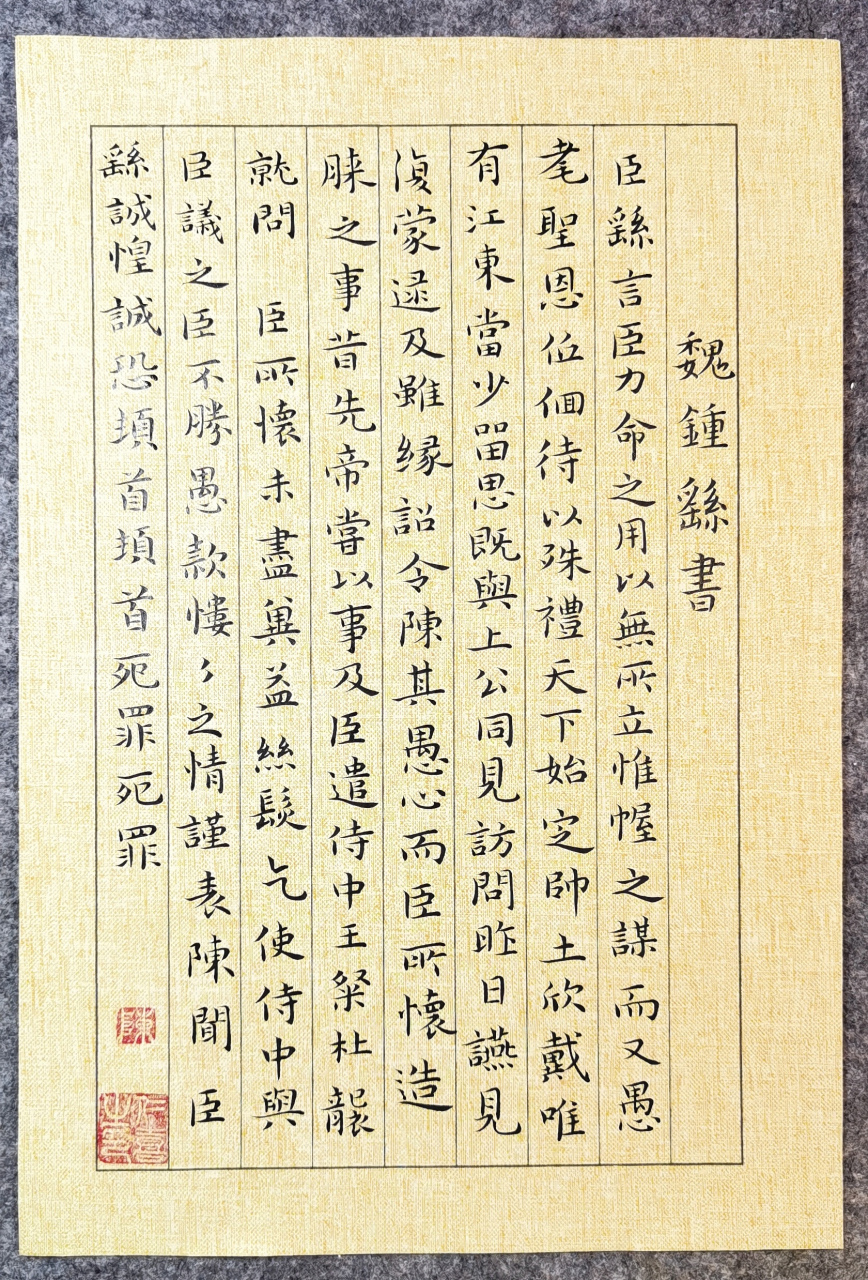 魏鍾繇書
臣繇言臣力命之用以無所立惟幄之謀而又愚
耄聖恩低徊待以殊禮天下始定帥土欣戴唯
有江東當少留思既與上公同見訪問昨日讌見
復蒙逮及雖緣詔令陳其愚心而臣所懷造
膝之事昔先帝嘗以事及臣遣侍中王粲杜襲
就問 臣所懷未盡冀益絲髮乞使侍中與
臣議之臣不勝愚款慺〻之情謹表陳聞臣
繇誠惶誠恐頓首頓首死罪死罪
陳